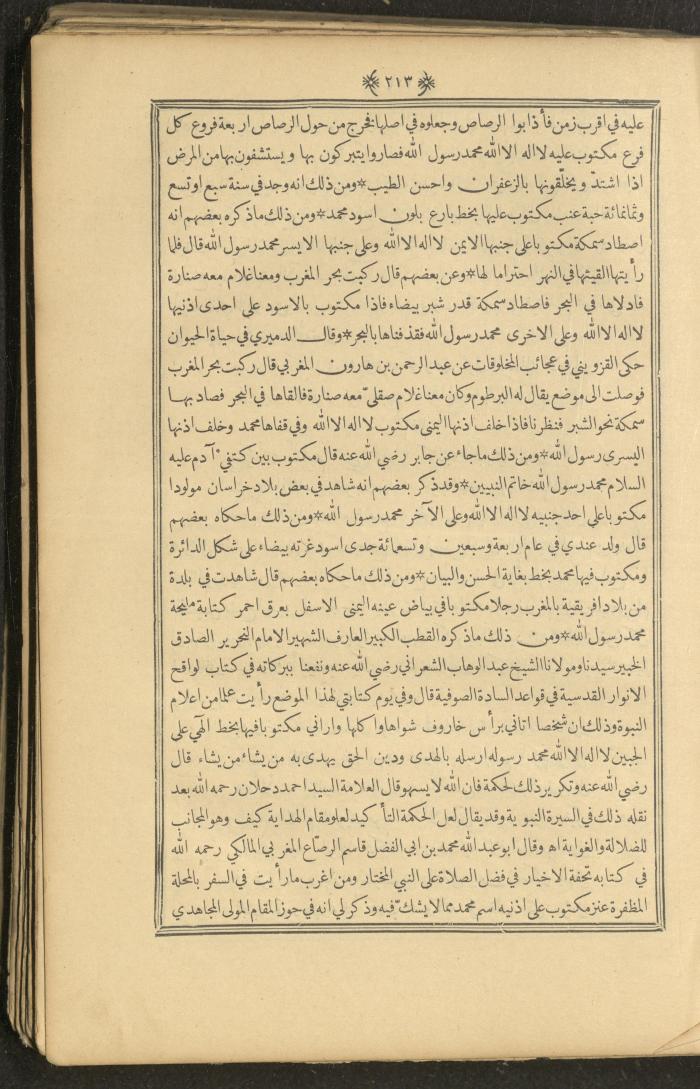 ٢١٣
عليه في اقرب زمن فأذابوا الرصاص وجعلوه في اصلها فخرج من حول الرصاص اربعة فروع كل
فرع مكتوب عليه لااله الاالله محمد رسول الله فصاروا يتبركون بها ويستشفون بها من المرض
اذا اشتدّ ويخلّقونها بالزعفران واحسن الطيب * ومن ذلك انه وجد في سنة سبع او تسع
وثمانمائة حبة عنب مكتوب عليها بخط بارع بلون اسود محمد * ومن ذلك ماذكره بعضهم انه
اصطاد سمكة مكتوبا على جنبها الايمن لااله الاالله وعلى جنبها الايسر محمد رسول الله قال فلما
رأيتها القيتها في النهر احتراما لها * وعن بعضهم قال ركبت بحر المغرب ومعنا غلام معه صنارة
فادلاها في البحر فاصطاد سمكة قدر شبر بيضاء فاذا مكتوب بالاسود على احدى اذنيها
لااله الاالله وعلى الاخرى محمد رسول الله فقذفناها بالبحر * وقال الدميري في حياة الحيوان
حكى القزويني في عجائب المخلوقات عن عبد الرحمن بن هارون المغربي قال ركبت بحر المغرب
فوصلت الى موضع يقال له البرطوم وكان معنا غلام صقلىّ معه صنارة فالقاها في البحر فصاد بها
سمكة نحو الشبر فنظرنا فاذا خلف اذنها اليمنى مكتوب لااله الاالله وفي قفاها محمد وخلف اذنها
اليسرى رسول الله * ومن ذلك ماجاء عن جابر رضي الله عنه قال مكتوب بين كتفي آدم عليه
السلام محمد رسول الله خاتم النبيين * وقد ذكر بعضهم انه شاهد في بعض بلاد خراسان مولودا
مكتوبا على احد جنبيه لااله الاالله وعلى الآخر محمد رسول الله * ومن ذلك ماحكاه بعضهم
قال ولد عندي في عام اربعة وسبعين وتسعمائة جدى اسود غرته بيضاء على شكل الدائرة
ومكتوب فيها محمد بخط بغاية الحسن والبيان * ومن ذلك ماحكاه بعضهم قال شاهدت في بلدة
من بلاد افريقية بالمغرب رجلا مكتوبا في بياض عينه اليمنى الاسفل بعرق احمر كتابة مليحة
محمد رسول الله * ومن ذلك ماذكره القطب الكبير العارف الشهير الامام النحرير الصادق
الخبير سيدنا ومولانا الشيخ عبد الوهاب الشعراني رضي الله عنه ونفعنا ببركاته في كتاب لواقح
الانوار القدسية في قواعد السادة الصوفية قال وفي يوم كتابتي لهذا الموضع رأيت علما من اعلام
النبوة وذلك ان شخصا اتاني برأس خاروف شواها واكلها واراني مكتوبا فيها بخط الهي على
الجبين لااله الاالله محمد رسوله ارسله بالهدى ودين الحق يهدى به من يشاء من يشاء قال
رضي الله عنه وتكرير ذلك لحكمة فان الله لا يسهو قال العلامة السيد احمد دحلان رحمه الله بعد
نقله ذلك في السيرة النبوية وقد يقال لعل الحكمة التأكيد لعلو مقام الهداية كيف وهو المجانب
للضلالة والغواية اه وقال ابو عبد الله محمد بن ابي الفضل قاسم الرصّاع المغربي المالكي رحمه الله
في كتابه تحفة الاخيار في فضل الصلاة على النبي المختار ومن اغرب مارأيت في السفر بالمحلة
المظفرة عنز مكتوب على اذنيه اسم محمد مما لا يشكّ فيه وذكر لي انه في حوز المقام المولى المجاهدي